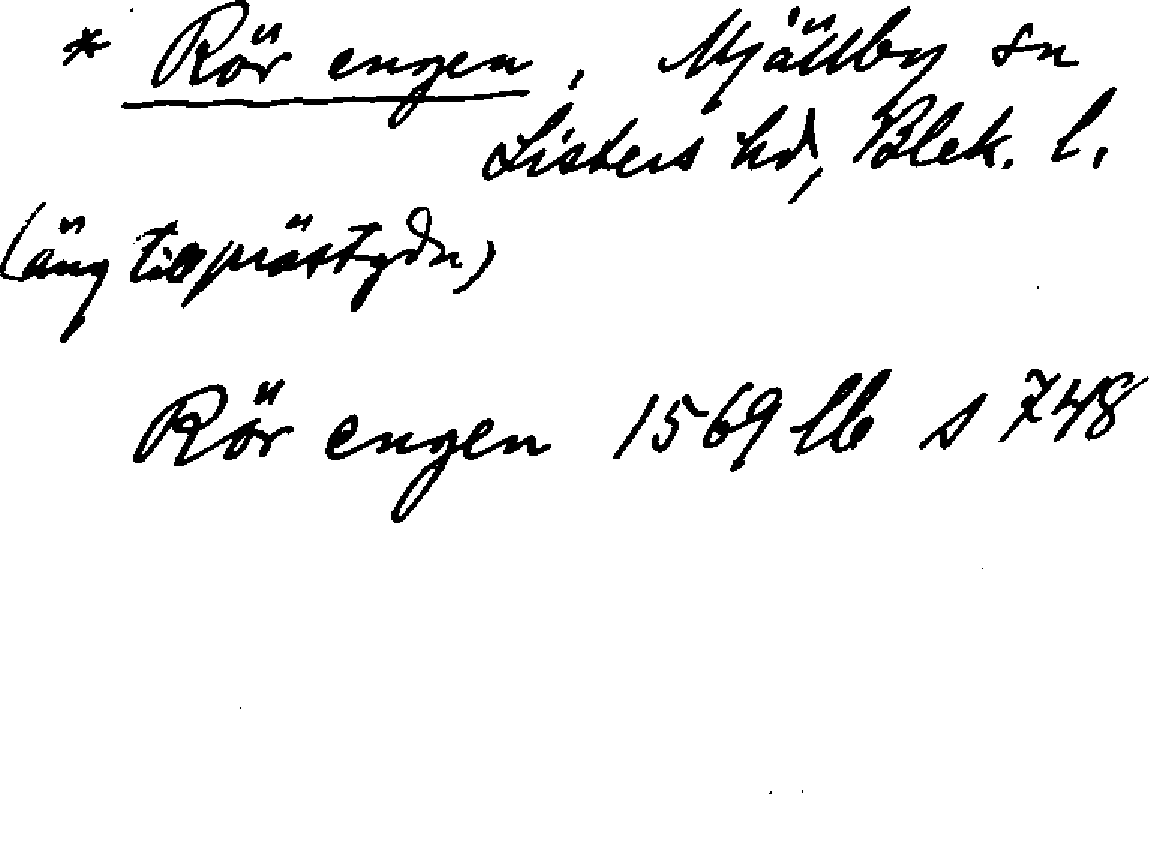 * Rör engen, Mjällby sn
Listers hd, Blek. l.
(äng till prästgdn)
Rör engen 1569 lb s 748